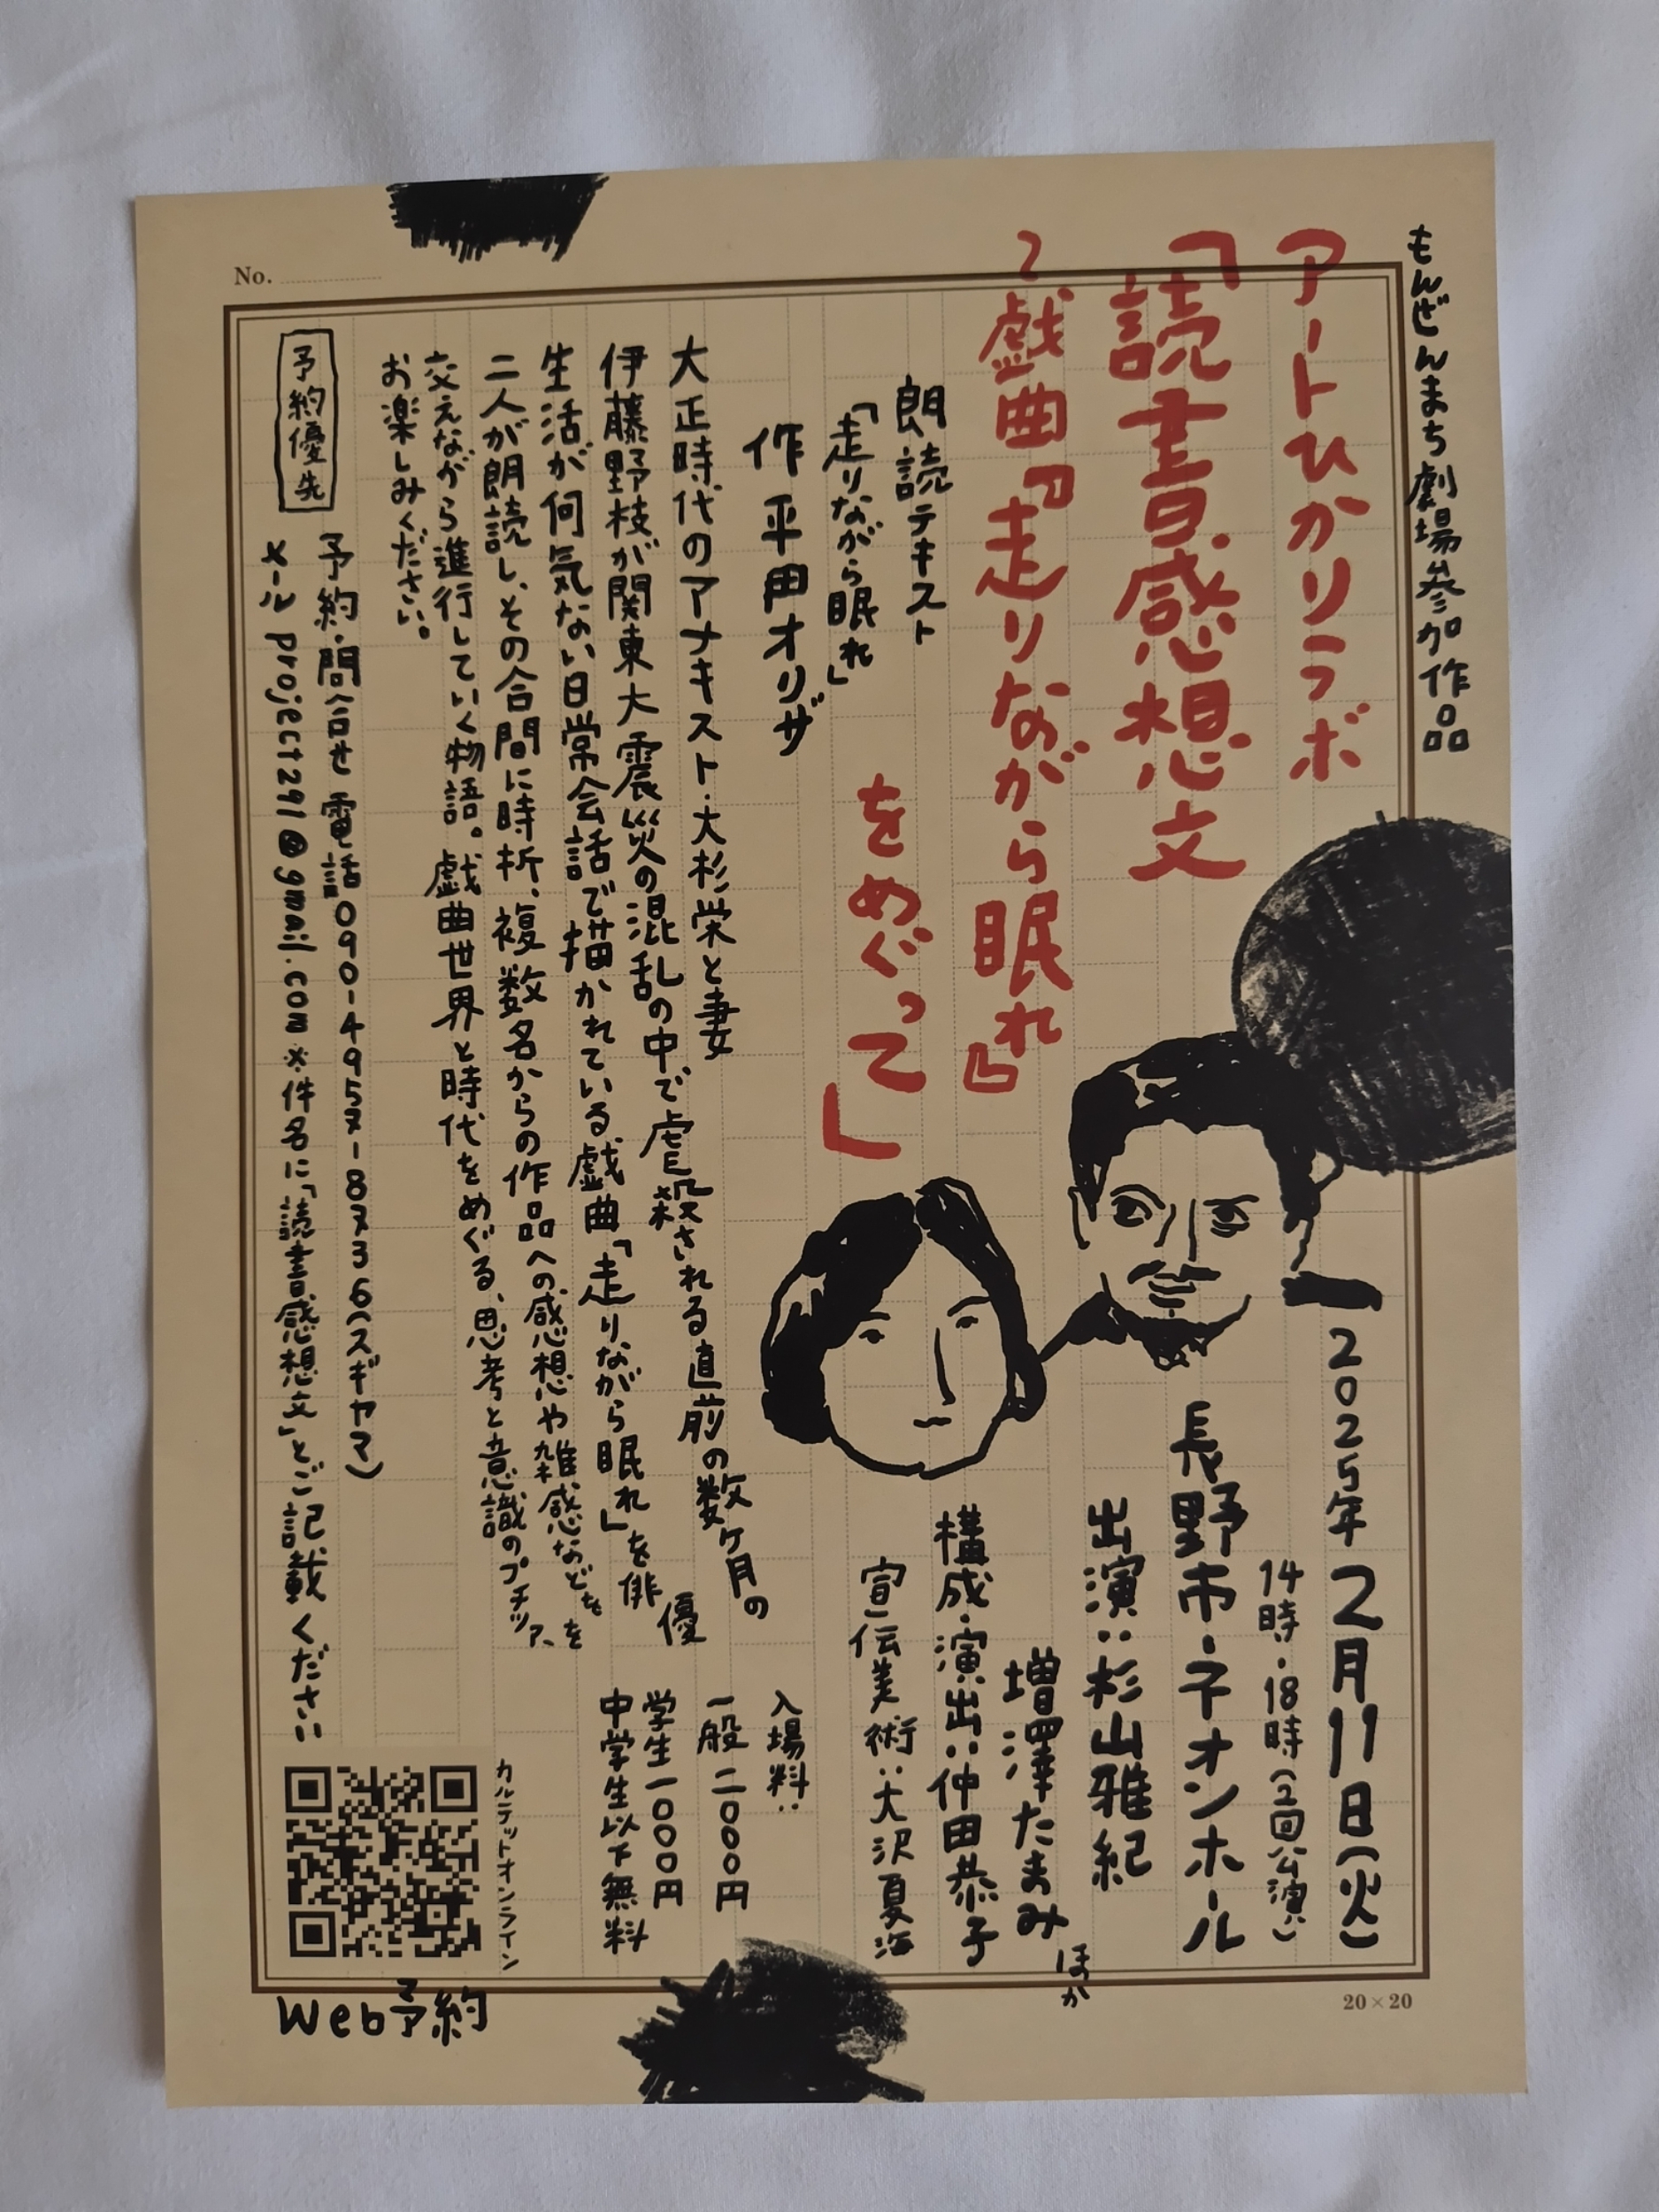 もんぜんまち劇場参加作品
アートひかりラボ
「読書感想文
〜戯曲『走りながら眠れ』
をめぐって」
朗読テキスト
「走りながら眠れ」
作 平田オリザ
2025年2月11日(火)
14時・18時(2回公演)
長野市・ネオンホール
出演:杉山雅紀
増澤たまみ
ほか
構成・演出:仲田恭子
宣伝美術:大沢夏海
大正時代のアナキスト・大杉栄と妻
伊藤野枝が関東大震災の混乱の中で虐殺される直前の数ヶ月の
生活が何気ない日常会話で描かれている戯曲「走りながら眠れ」を俳優
二人が朗読し、その合間に時折、複数名からの作品への感想や雑感などを
交えながら進行していく物語。戯曲世界と時代をめぐる、思考と意識のプチツアーを
お楽しみください。
入場料:
一般 二〇〇〇円
学生一〇〇〇円
中学生以下無料
予約優先
予約・問合せ 電話090-4957-8736(スギヤマ)
メール project291@gmail.com ※件名に「読書感想文」とご記載ください
カルテットオンライン
Web予約
No.
20×20